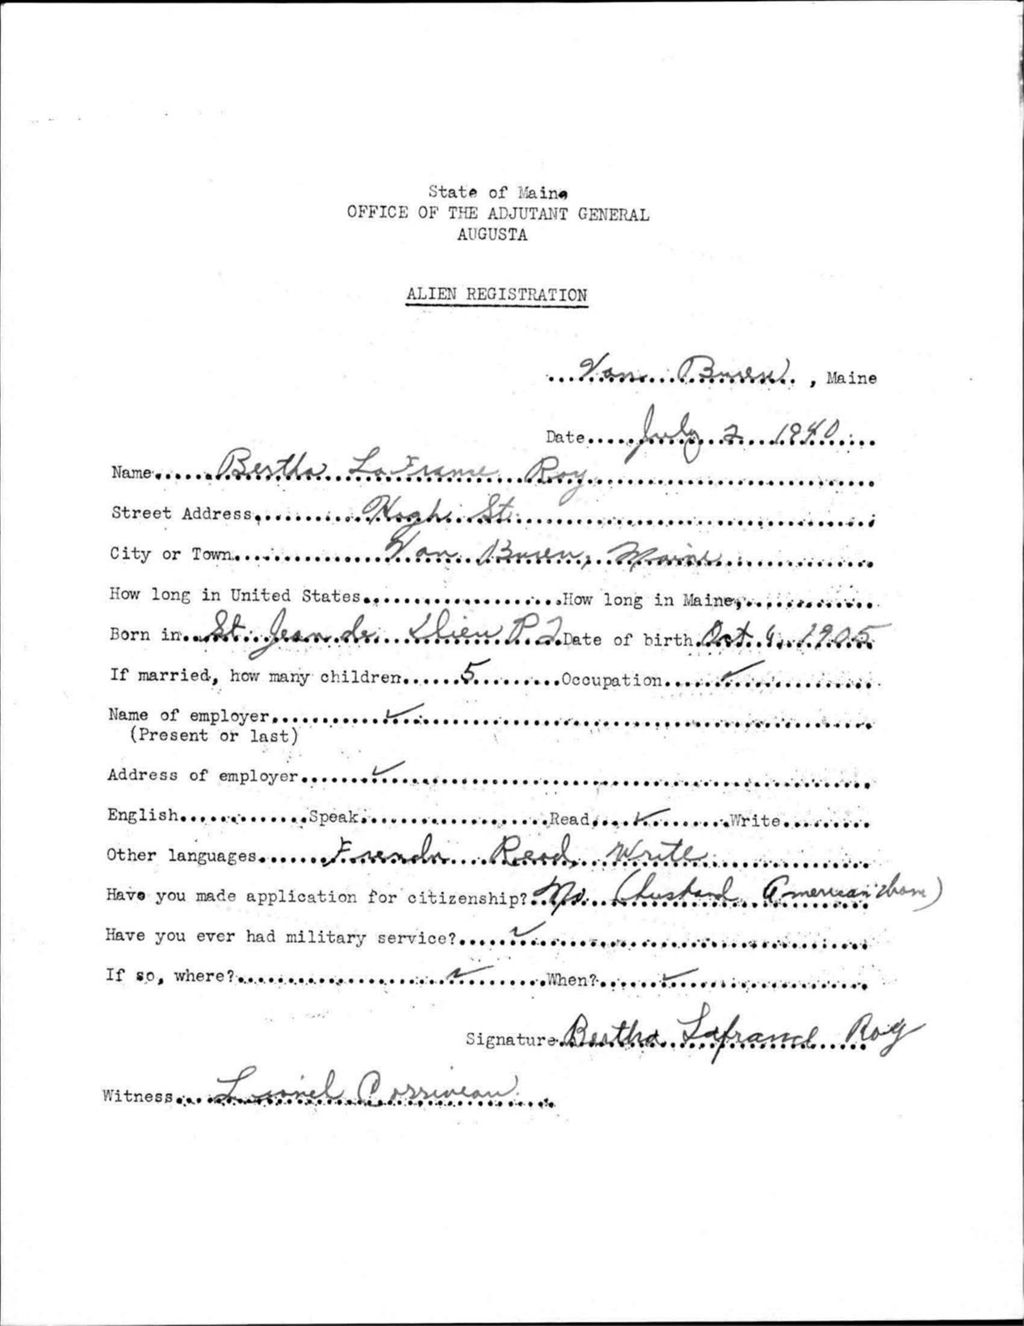 State of Maine
OFFICE OF THE ADJUTANT GENERAL
AUGUSTA
ALIEN REGISTRATION
Van Buren, Maine
Date July 2 1940
Name Bertha LaFrance Roy
Street Address High St.
City or Town Van Buren, Maine
How long in United States How long in Maine
Born in St. Jean de Dieu P.Q Date of birth Oct 6, 1905
If married, how many children 5 Occupation ✓
Name of employer ✓
(Present or last)
Address of employer ✓
English Speak Read ✓ Write
Other languages French Read Write
Have you made application for citizenship? No (husband American born)
Have you ever had military service? ✓
If so, where? ✓ When? ✓
Signature Bertha Lafrance Roy
Witness Lionel Corriveau